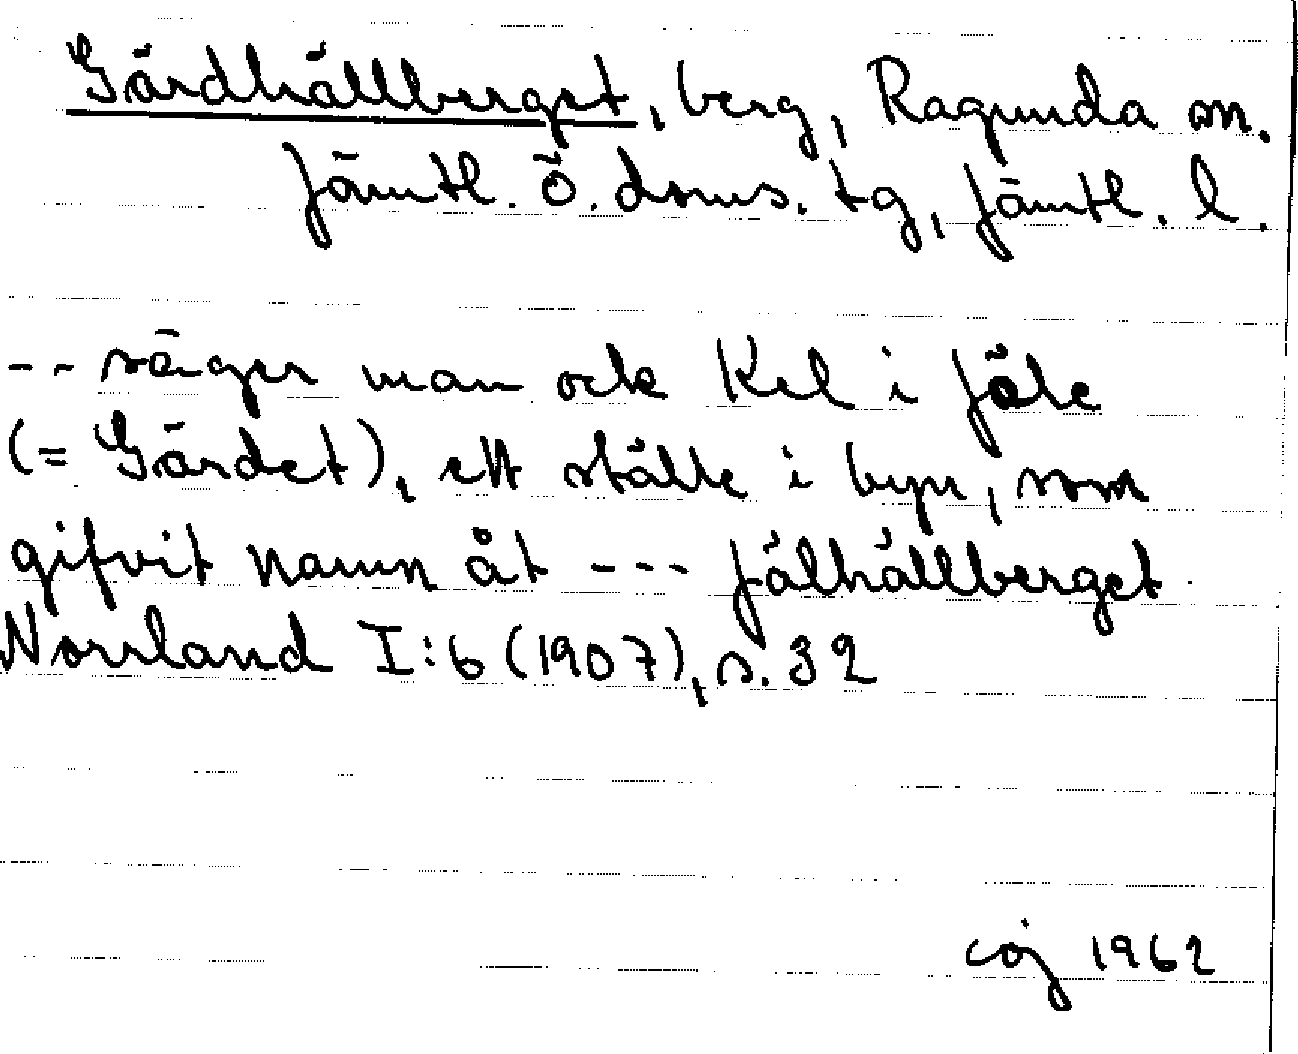 Gärdhällberget, berg, Ragunda sn.
Jämtl. Ö. doms. tg, Jämtl. l.
-- säger man ock Kel i Jäle
(= Gärdet), ett ställe i byn, som
gifvit namn åt --- Jälhällberget.
Norrland I:6 (1907), s. 32
coj 1962